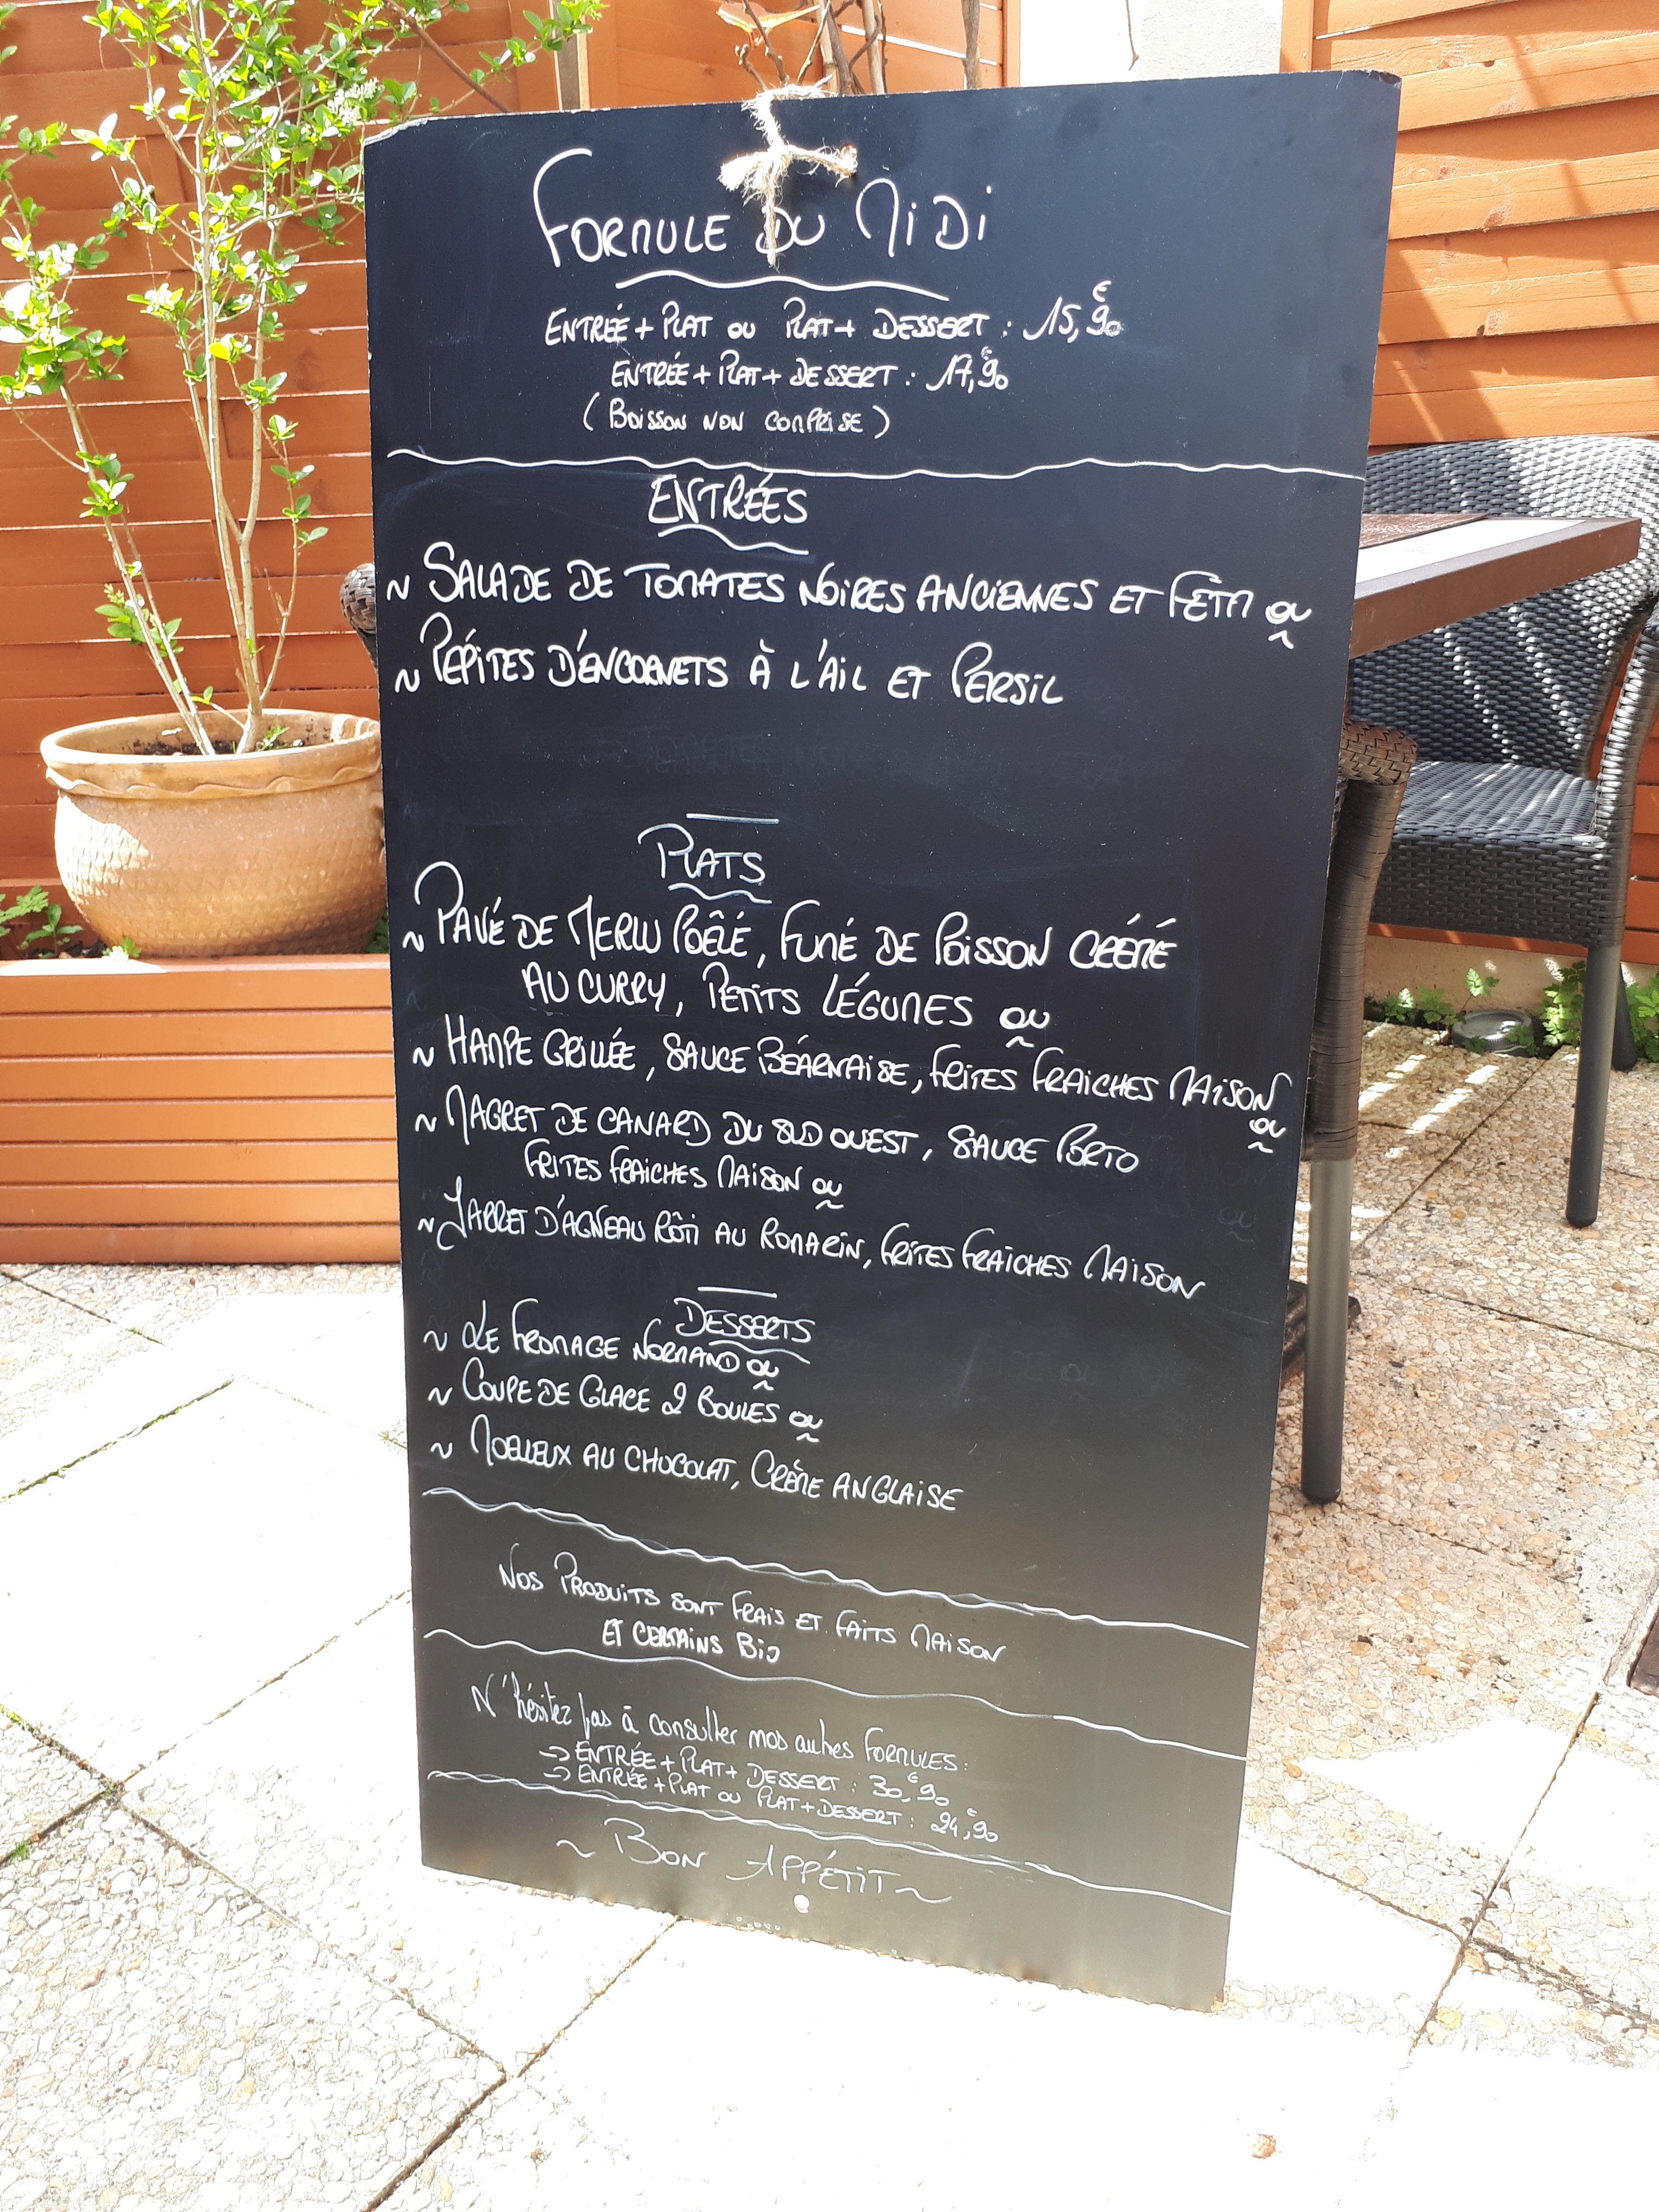 FORMULE DU MIDI
ENTRÉE + PLAT OU PLAT + DESSERT : 15,€90
ENTRÉE + PLAT + DESSERT : 17,€90
(BOISSON NON COMPRISE)
ENTRÉES
~ SALADE DE TOMATES NOIRES ANCIENNES ET FETA OU
~ PÉPITES D'ENCORNETS À L'AIL ET PERSIL
PLATS
~ PAVÉ DE MERLU POÊLÉ, FUMÉ DE POISSON CRÉMÉ
AU CURRY, PETITS LÉGUMES OU
~ HAMPE GRILLÉE, SAUCE BÉARNAISE, FRITES FRAICHES MAISON
OU
~ MAGRET DE CANARD DU SUD OUEST, SAUCE PORTO
FRITES FRAICHES MAISON OU
~ JARRET D'AGNEAU RÔTI AU ROMARIN, FRITES FRAICHES MAISON
DESSERTS
~ LE FROMAGE NORMAND OU
~ COUPE DE GLACE 2 BOULES OU
~ MOELLEUX AU CHOCOLAT, CRÈME ANGLAISE
NOS PRODUITS SONT FRAIS ET FAITS MAISON
ET CERTAINS BIO
N'hésitez pas à consulter nos autres FORMULES :
→ ENTRÉE + PLAT + DESSERT : 30,€90
→ ENTRÉE + PLAT OU PLAT + DESSERT : 24,€90
~ BON APPÉTIT ~